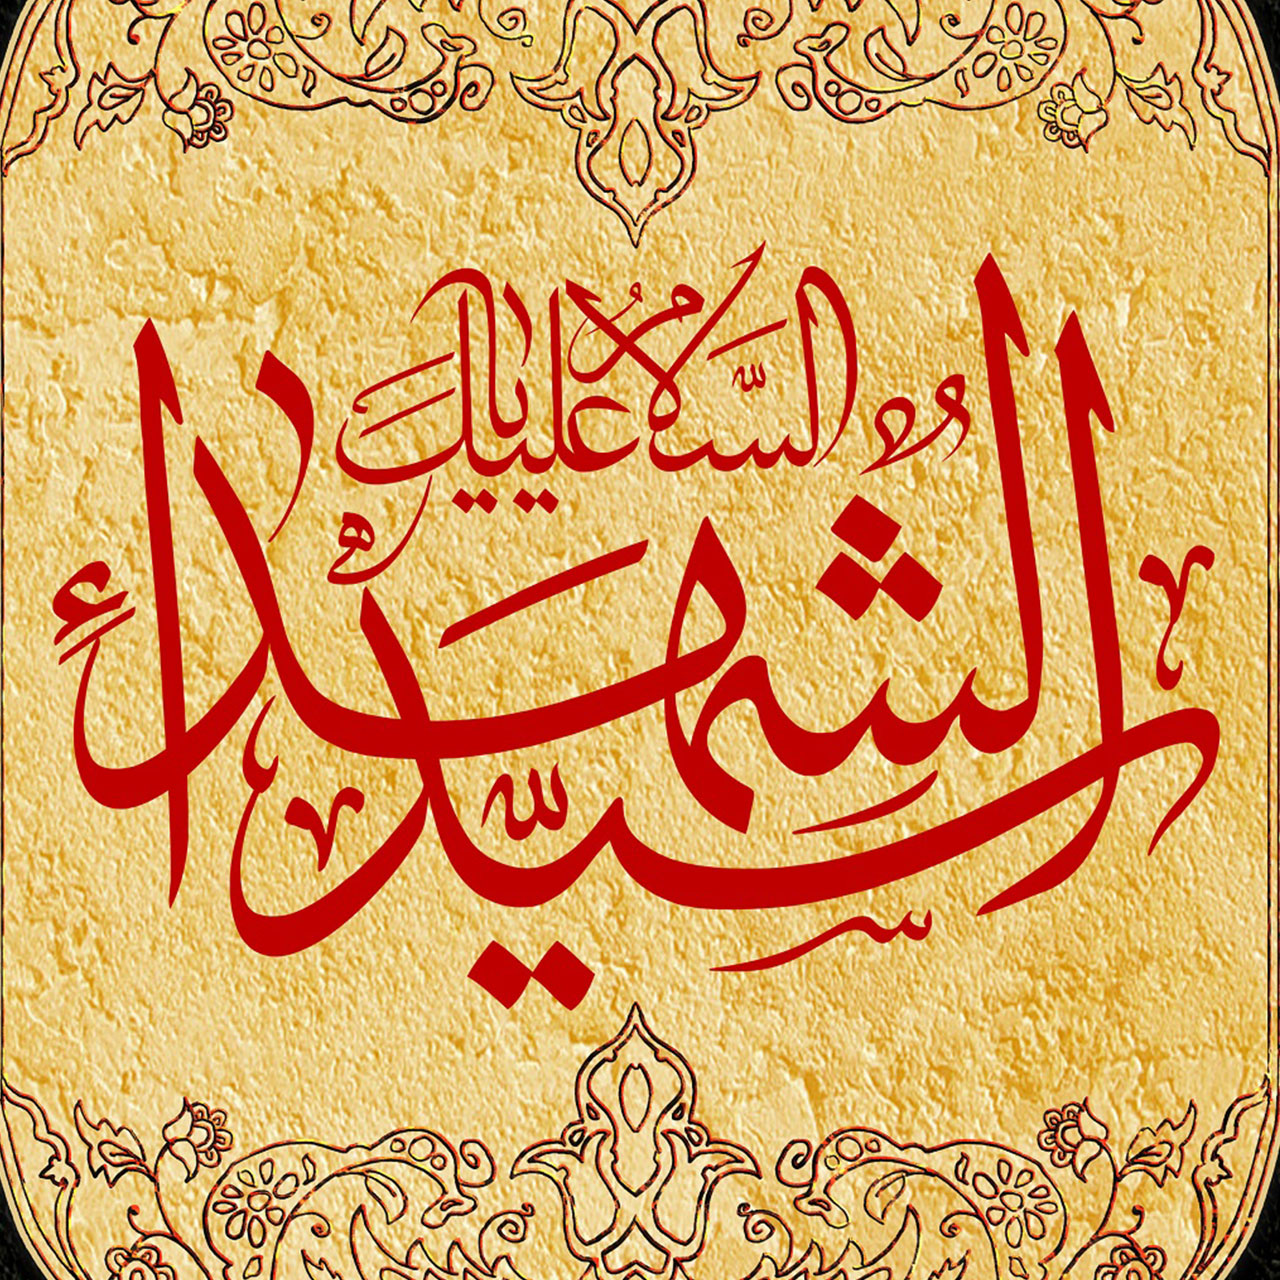 السَّلامُ عليكَ
يا سيّد الشُهدْاء